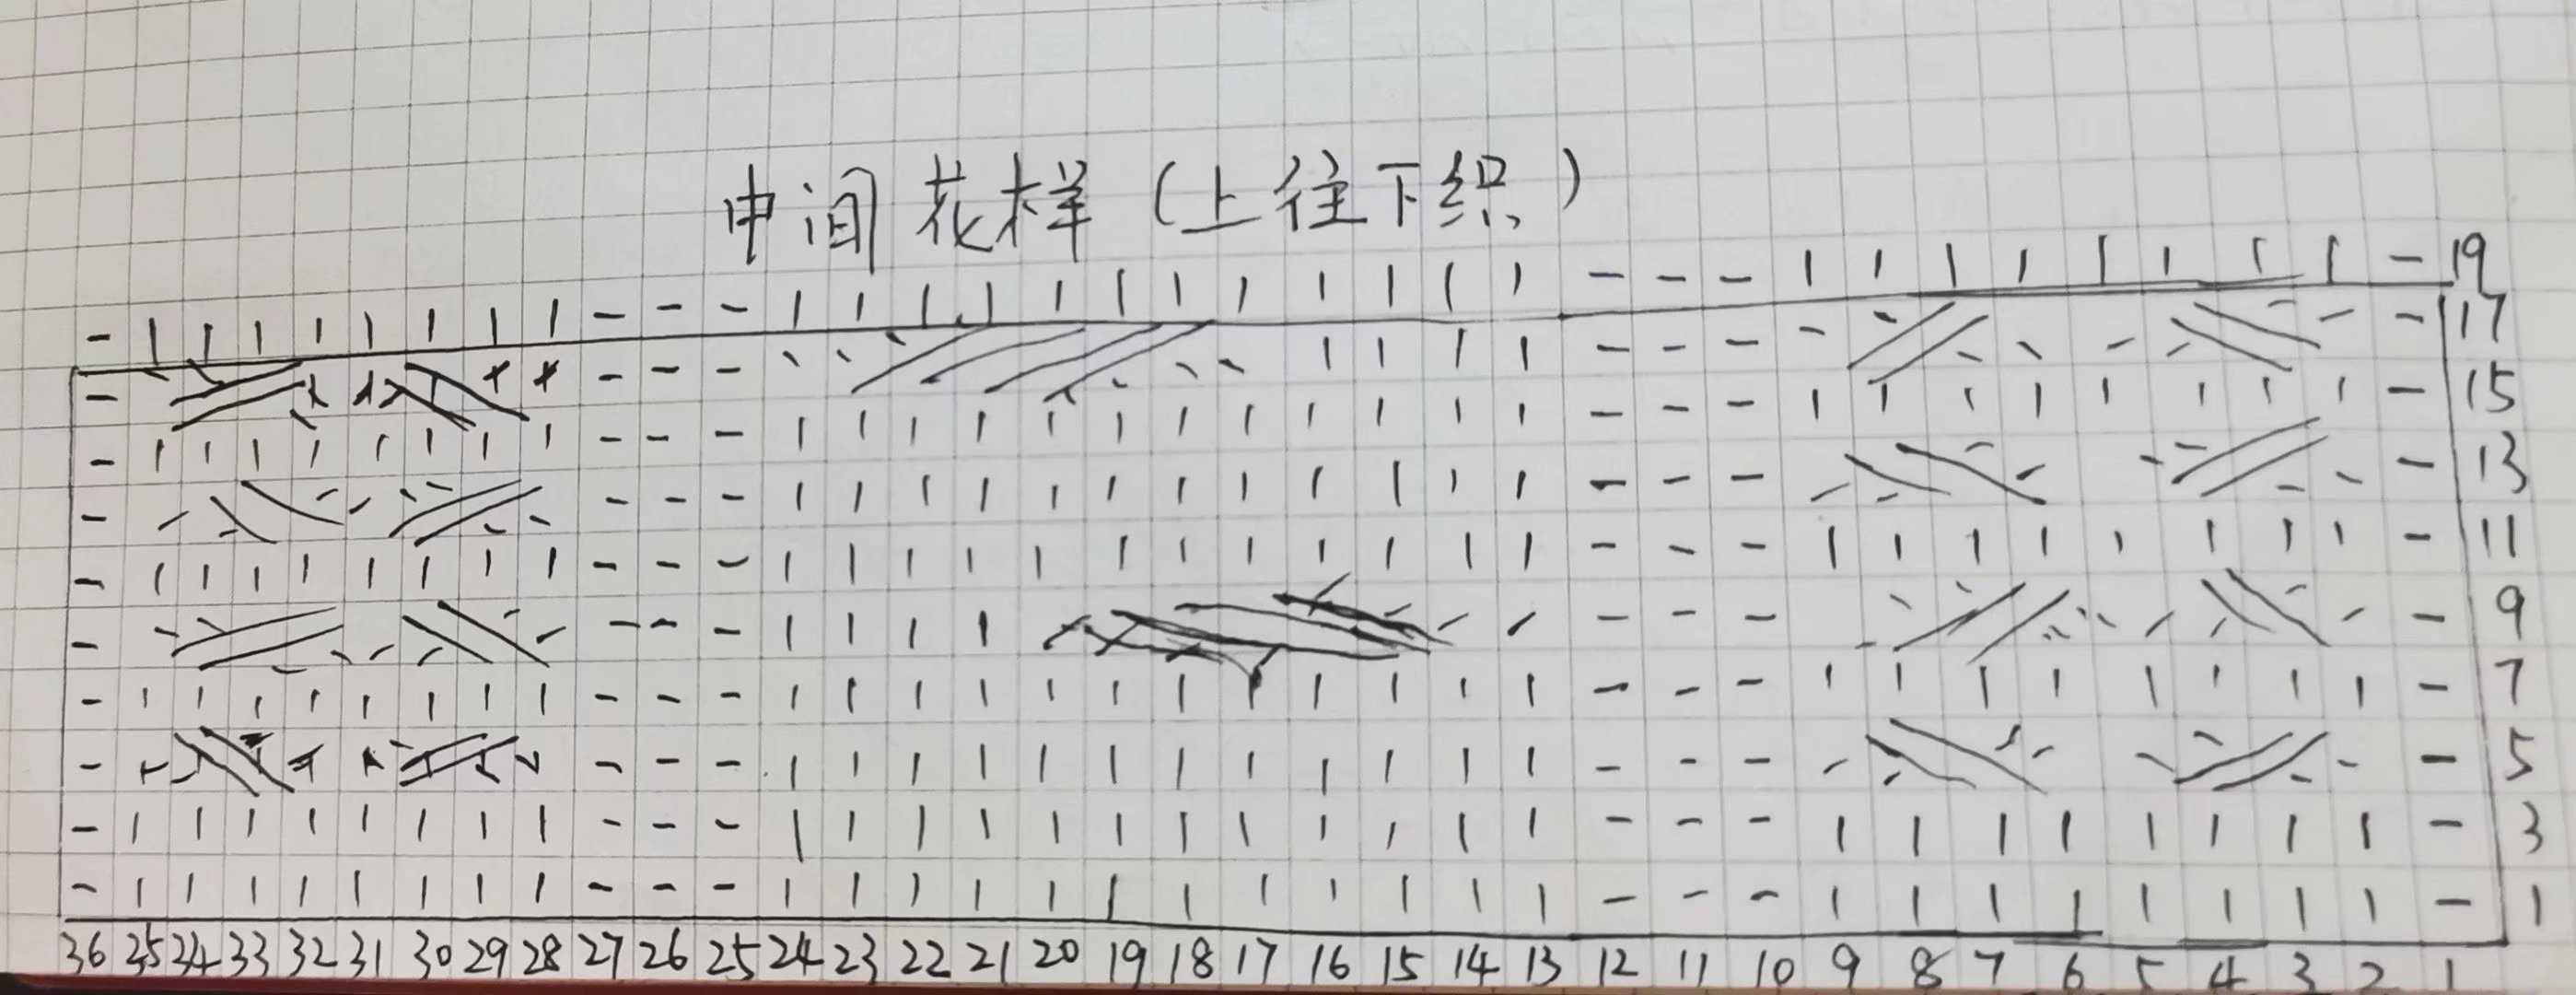 中间花样(上往下织)
19
17
15
13
11
9
7
5
3
1
36 35 34 33 32 31 30 29 28 27 26 25 24 23 22 21 20 19 18 17 16 15 14 13 12 11 10 9 8 7 6 5 4 3 2 1